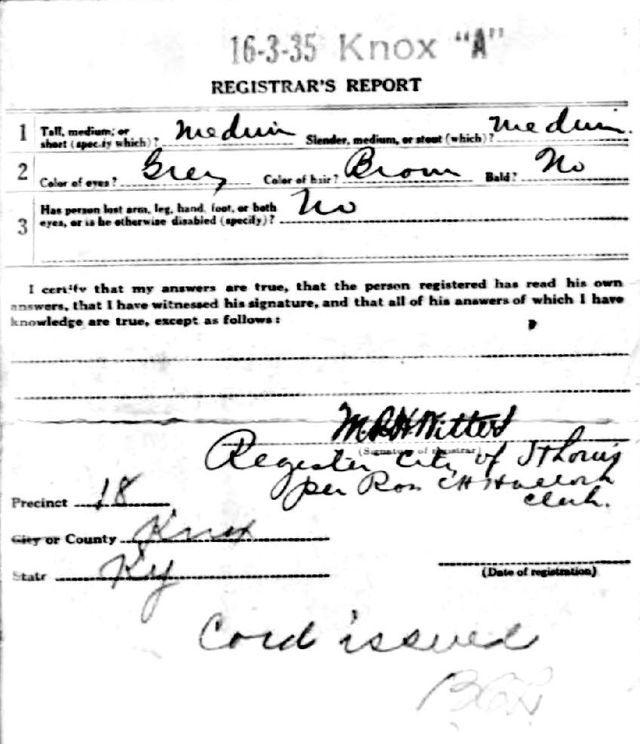 16-3-35 Knox "A"
REGISTRAR'S REPORT
1 Tall, medium, or short (specify which)? Medium Slender, medium, or stout (which)? Medium.
2 Color of eyes? Grey Color of hair? Brown Bald? No
3 Has person lost arm, leg, hand, foot, or both eyes, or is he otherwise disabled (specify)? No
I certify that my answers are true, that the person registered has read his own
answers, that I have witnessed his signature, and that all of his answers of which I have
knowledge are true, except as follows:
(Signature of registrar)
Register City of St Louis
per
Clerk.
Precinct 18
City or County Knox
State Ky
(Date of registration)
Card issued